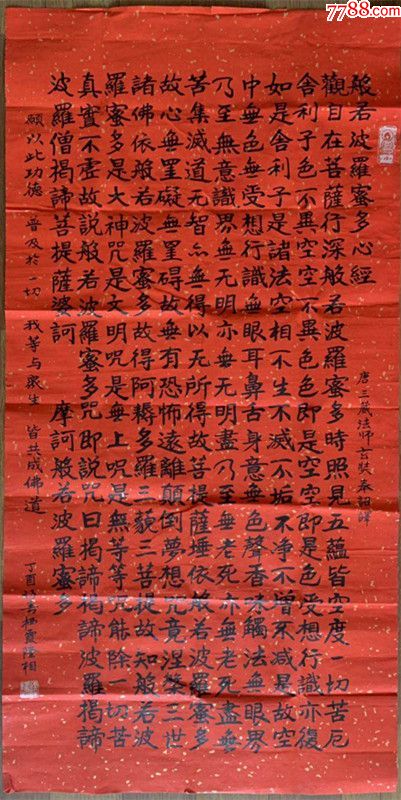 7788.com
般若波羅蜜多心經
唐三藏法師玄奘奉詔譯
觀自在菩薩行深般若波羅蜜多時照見五蘊皆空度一切苦厄
舍利子色不異空空不異色色即是空空即是色受想行識亦復
如是舍利子是諸法空相不生不滅不垢不净不增不減是故空
中無色無受想行識無眼耳鼻舌身意無色聲香味觸法無眼界
乃至無意識界無无明亦無无明盡乃至無老死亦無老死盡無
苦集滅道无智亦無得以无所得故菩提薩埵依般若波羅蜜多
故心無罣礙無罣碍故無有恐怖遠離顛倒夢想究竟涅槃三世
諸佛依般若波羅蜜多故得阿耨多羅三藐三菩提故知般若波
羅蜜多是大神咒是大明咒是無上咒是無等等咒能除一切苦
真實不虛故説般若波羅蜜多咒即説咒曰揭諦揭諦波羅揭諦
波羅僧揭諦菩提薩婆訶 摩訶般若波羅蜜多
願以此功德 普及於一切 我等与眾生 皆共成佛道
丁酉 栖霞隆相